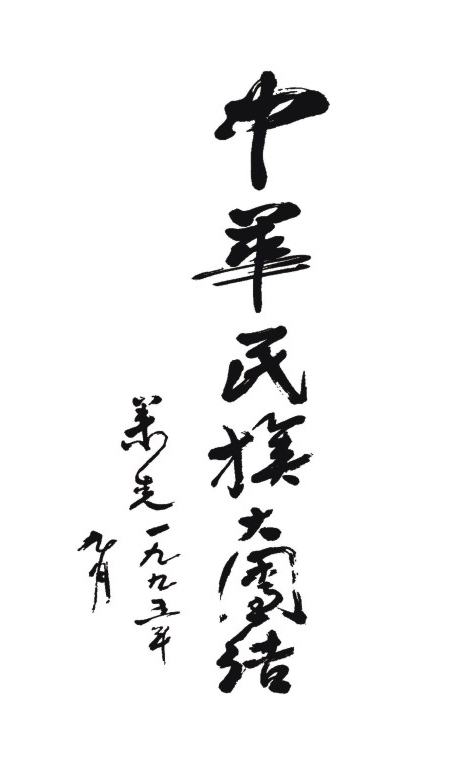 中華民族大團结
萧克一九九五年
九月